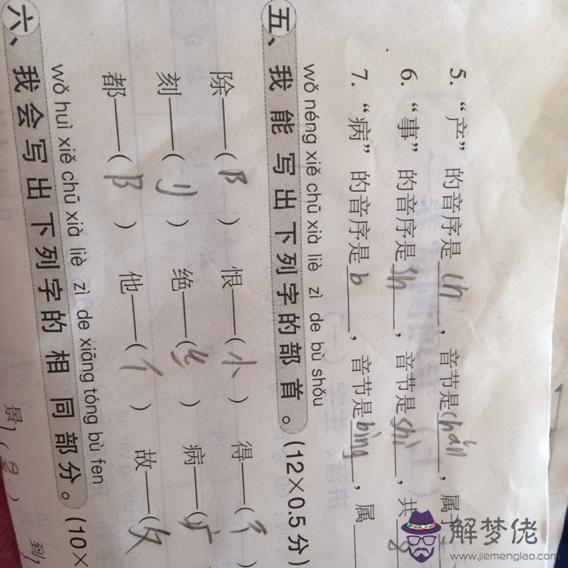 5. “产”的音序是 ch ，音节是 chǎn ，属
6. “事”的音序是 sh ，音节是 shì ，共 8
7. “病”的音序是 b ，音节是 bìng ，属
wǒ néng xiě chū xià liè zì de bù shǒu
五、我能写出下列字的部首。(12×0.5分)
除——(阝) 恨——(忄) 得——(彳)
刻——(刂) 绝——(纟) 病——(疒)
都——(阝) 他——(亻) 故——(攵)
wǒ huì xiě chū xià liè zì de xiāng tóng bù fen
六、我会写出下列字的相同部分。(10×
景 ( ) 到
解梦佬
www.jiemenglao.com